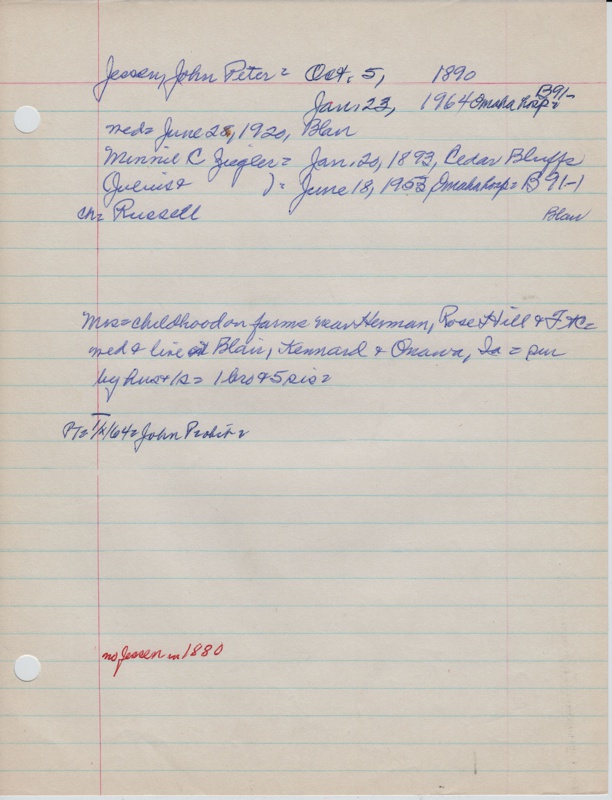 Jessen, John Peter = Oct. 5, 1890
Jan. 23, 1964 Omaha hosp = B91-
med = June 28, 1920, Blair
Minnie C Ziegler = Jan. 20, 1893, Cedar Bluffs
) = June 18, 1953, Omaha hosp = B91-1
ch = Russell Blair
Mrs = childhood on farms near Herman, Rose Hill & F +C =
med & live at Blair, Kennard & Onawa, Ia = sur
by hus + 1s = 1 bro & 5 sis =
PT = 1/2/64 = John Probit =
no Jessen in 1880